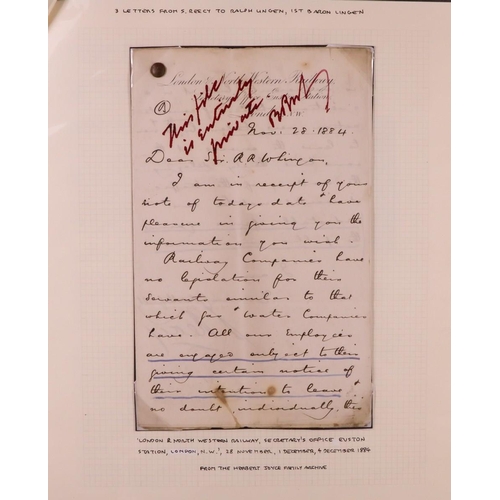 3 LETTERS FROM S. REECY TO RALPH LINGEN, 1ST BARON LINGEN
London & North Western Railway,
Secretary's Office, Euston Station
London, N.W.
This file
is entirely
private
Nov. 28. 1884.
Dear Sir R.R.W.
I am in receipt of your
note of todays date & have
pleasure in giving you the
information you wish.
Railway Companies have
no legislation for their
Servants similar to that
which Gas & Water Companies
have. All our Employees
are engaged subject to their
giving certain notice of
their intention to leave &
no doubt individually, this
'LONDON & NORTH WESTERN RAILWAY, SECRETARY'S OFFICE EUSTON
STATION, LONDON, N.W.', 28 NOVEMBER, 1 DECEMBER, 4 DECEMBER 1884
FROM THE HERBERT JOYCE FAMILY ARCHIVE